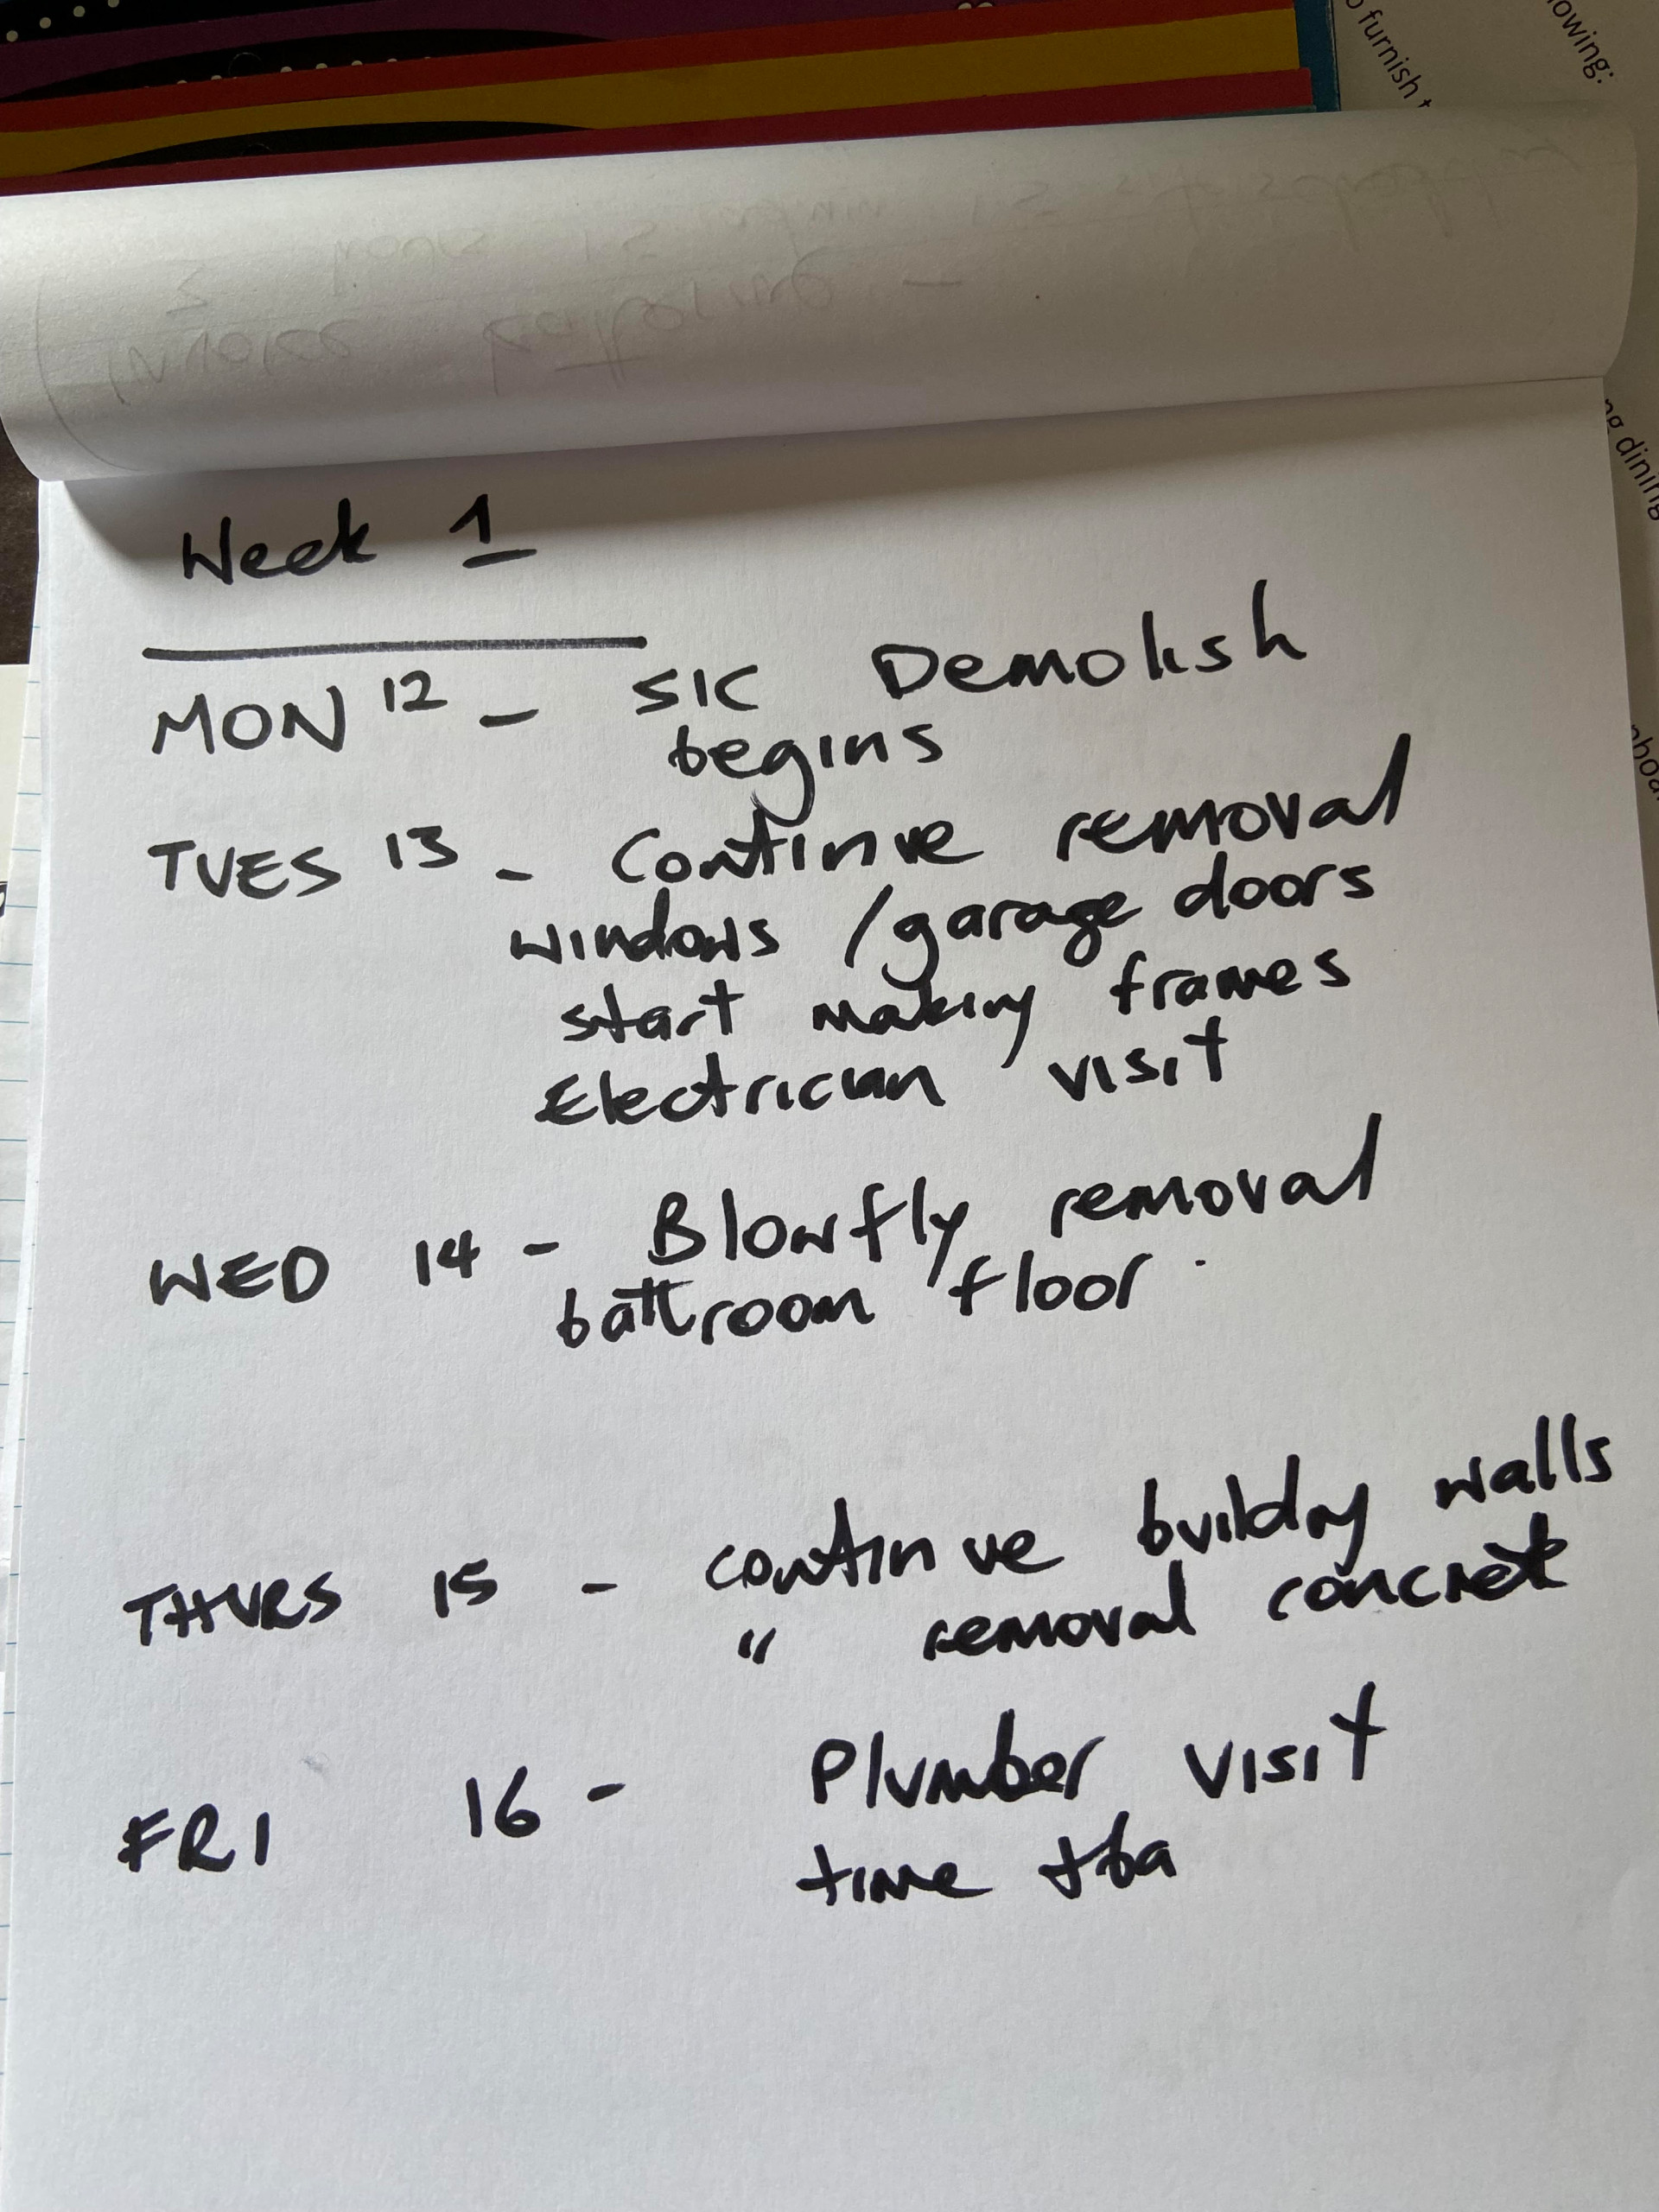 o furnish t
owing:
ng dining
Week 1
MON 12 - SIC Demolish
begins
TUES 13 - Continue removal
windows / garage doors
start making frames
Electrician visit
WED 14 - Blowfly removal
bathroom floor.
THURS 15 - continue building walls
" removal concrete
FRI 16 - Plumber visit
time tba